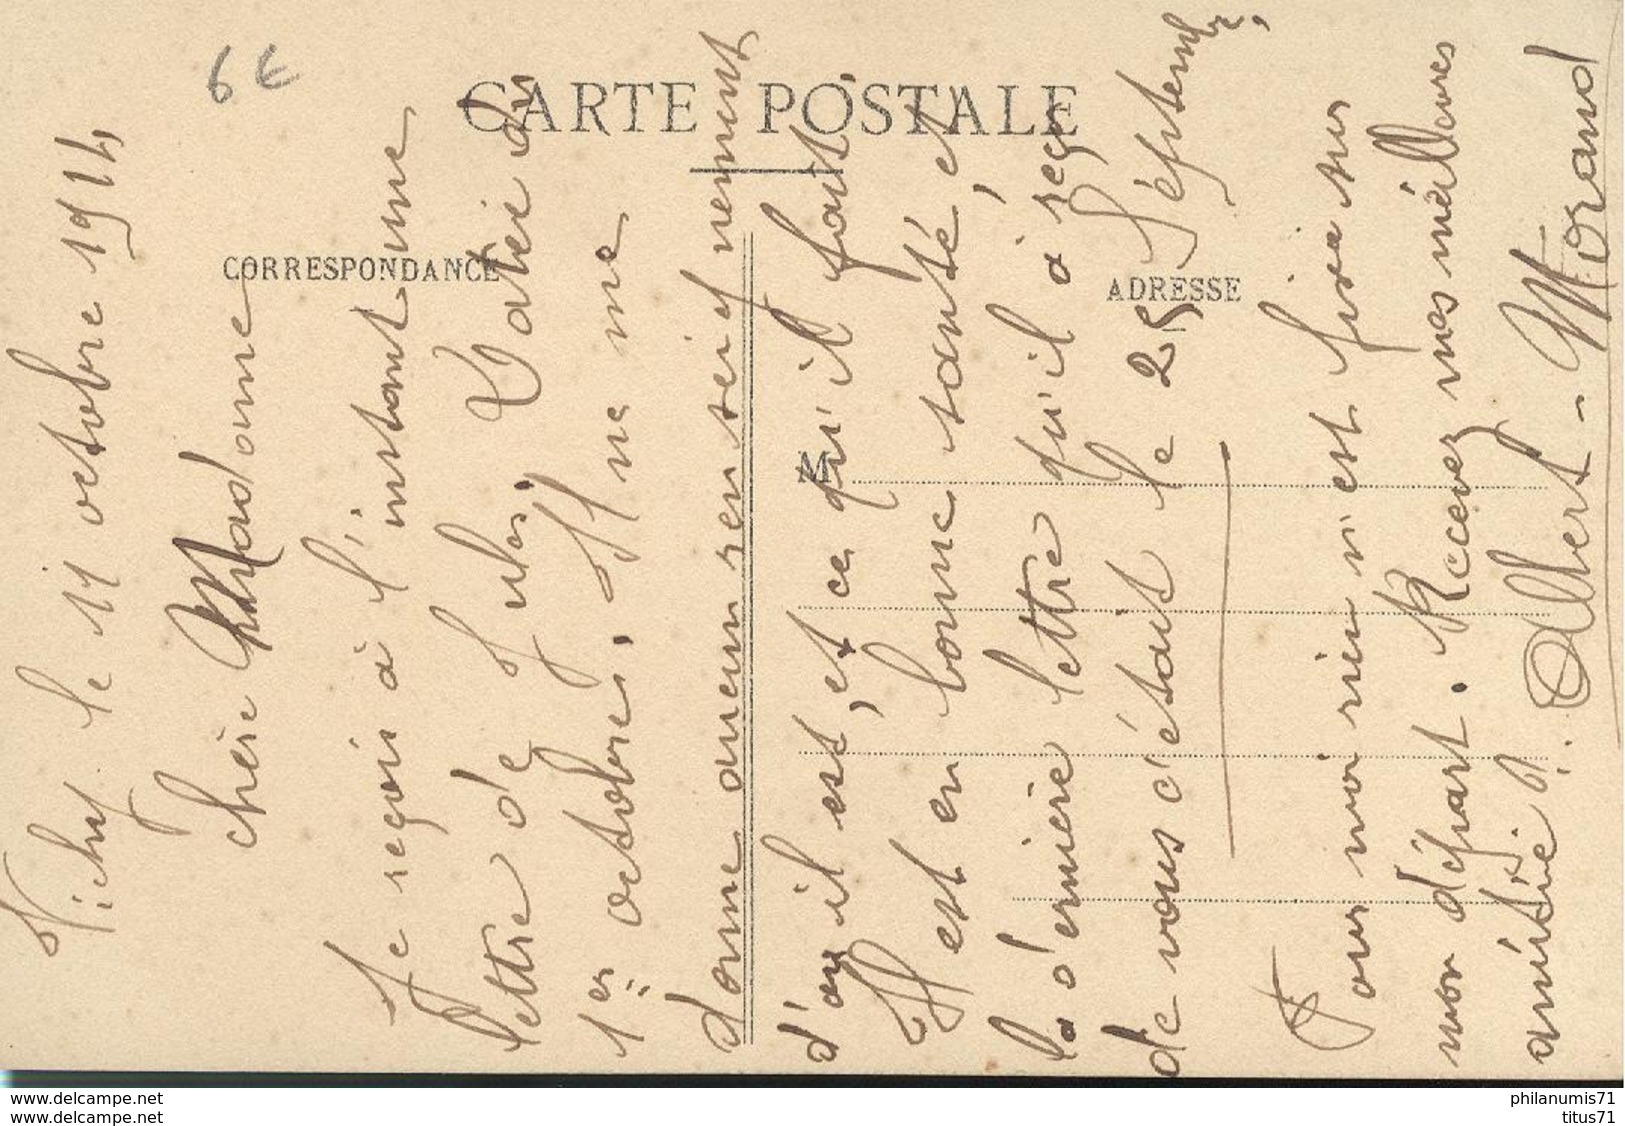 6 €
CARTE POSTALE
CORRESPONDANCE
ADRESSE
M
Vichy le 11 octobre 1914
Chère Madame
Je reçois à l'instant une
lettre de Jules, Datée du
1er octobre. Il ne me
donne aucun renseignement
d'où il est, et ce qu'il fait,
Il est en bonne santé, et
la dernière lettre qu'il a reçu
de vous c'était le 25 Septembre,
Pour moi rien n'est fixé sur
mon départ. Recevez mes meilleures
amitiés. Albert-Morand
www.delcampe.net
www.delcampe.net
philanumis71
titus71